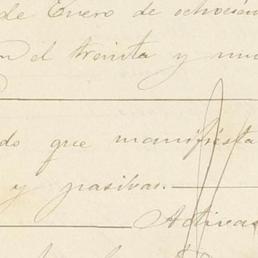 de Enero de ochocien
n el treinta y nu
do que manifiesta
y pasivas.
Activas